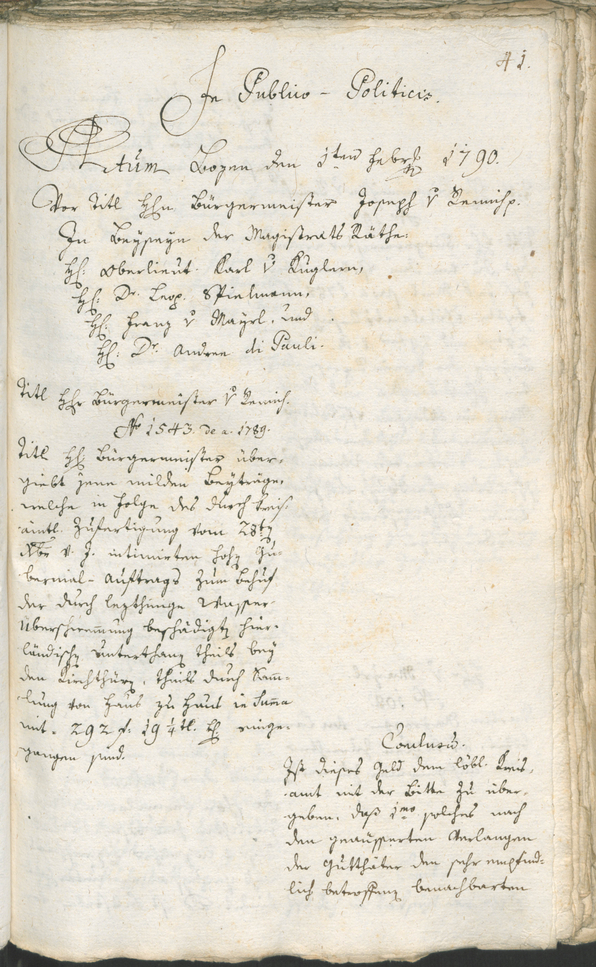 41.
In Publico - Politicis.
Actum Bozen den 1ten Febr. 1790.
Vor Titl Hhn. Bürgermeister Joseph v Remich.
In Beyseyn der Magistrats Räthe:
Hh: Oberlieut. Karl v Kuglern,
Hh: Dr. Leop. Spielmann,
Hh: Franz v Mayrl, und
Hh: Dr. Andree di Pauli.
Titl Hhr Bürgermeister v Remich.
No 1543. de a. 1789.
Titl Hh Bürgermeister über-
giebt jene milden Beyträge,
welche in Folge des durch kreis-
ämtl. Zufertigung vom 28ten
Xber v. J. intimirten hohen Gu-
bernial-Auftrags zum Behuf
der durch letzthinige Wasser
Überschwemmung beschädigten hier-
ländischen Unterthanen theils bey
den Kirchthüren, theils durch Samm-
lung von Haus zu Haus in Summa
mit 292 f. 19 ¼ kr. einge-
gangen sind.
Conclusum.
Ist dieses Geld dem löbl. Kreis-
amt mit der Bitte zu über-
geben, daß 1mo solches nach
den geäusserten Verlangen
der Gutthäter den sehr empfind-
lich betroffenen benachbarten